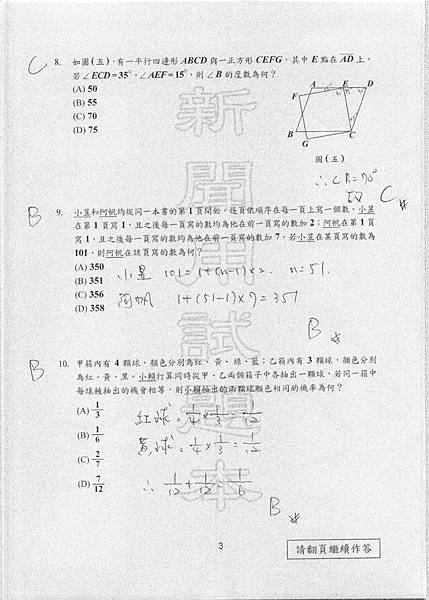 C
8. 如圖(五),有一平行四邊形 ABCD 與一正方形 CEFG,其中 E 點在 AD 上。
若∠ECD=35°,∠AEF=15°,則∠B 的度數為何?
(A) 50
(B) 55
(C) 70
(D) 75
A E D
F
B C
G
圖(五)
∴∠B=70°
C
B
9. 小昱和阿帆均從同一本書的第 1 頁開始,逐頁依順序在每一頁上寫一個數。小昱
在第 1 頁寫 1,且之後每一頁寫的數均為他在前一頁寫的數加 2;阿帆在第 1 頁
寫 1,且之後每一頁寫的數均為他在前一頁寫的數加 7。若小昱在某頁寫的數為
101,則阿帆在該頁寫的數為何?
(A) 350
(B) 351
(C) 356
(D) 358
小昱 101=1+(n-1)×2 n=51
阿帆 1+(51-1)×7=351
B
B
10. 甲箱內有 4 顆球,顏色分別為紅、黃、綠、藍;乙箱內有 3 顆球,顏色分別
為紅、黃、黑。小賴打算同時從甲、乙兩個箱子中各抽出一顆球,若同一箱中
每球被抽出的機會相等,則小賴抽出的兩顆球顏色相同的機率為何?
(A) 1/3
(B) 1/6
(C) 2/7
(D) 7/12
紅球=1/4×1/3=1/12
黃球=1/4×1/3=1/12
∴ 1/12+1/12=1/6
B
3
請翻頁繼續作答
新聞用試題本